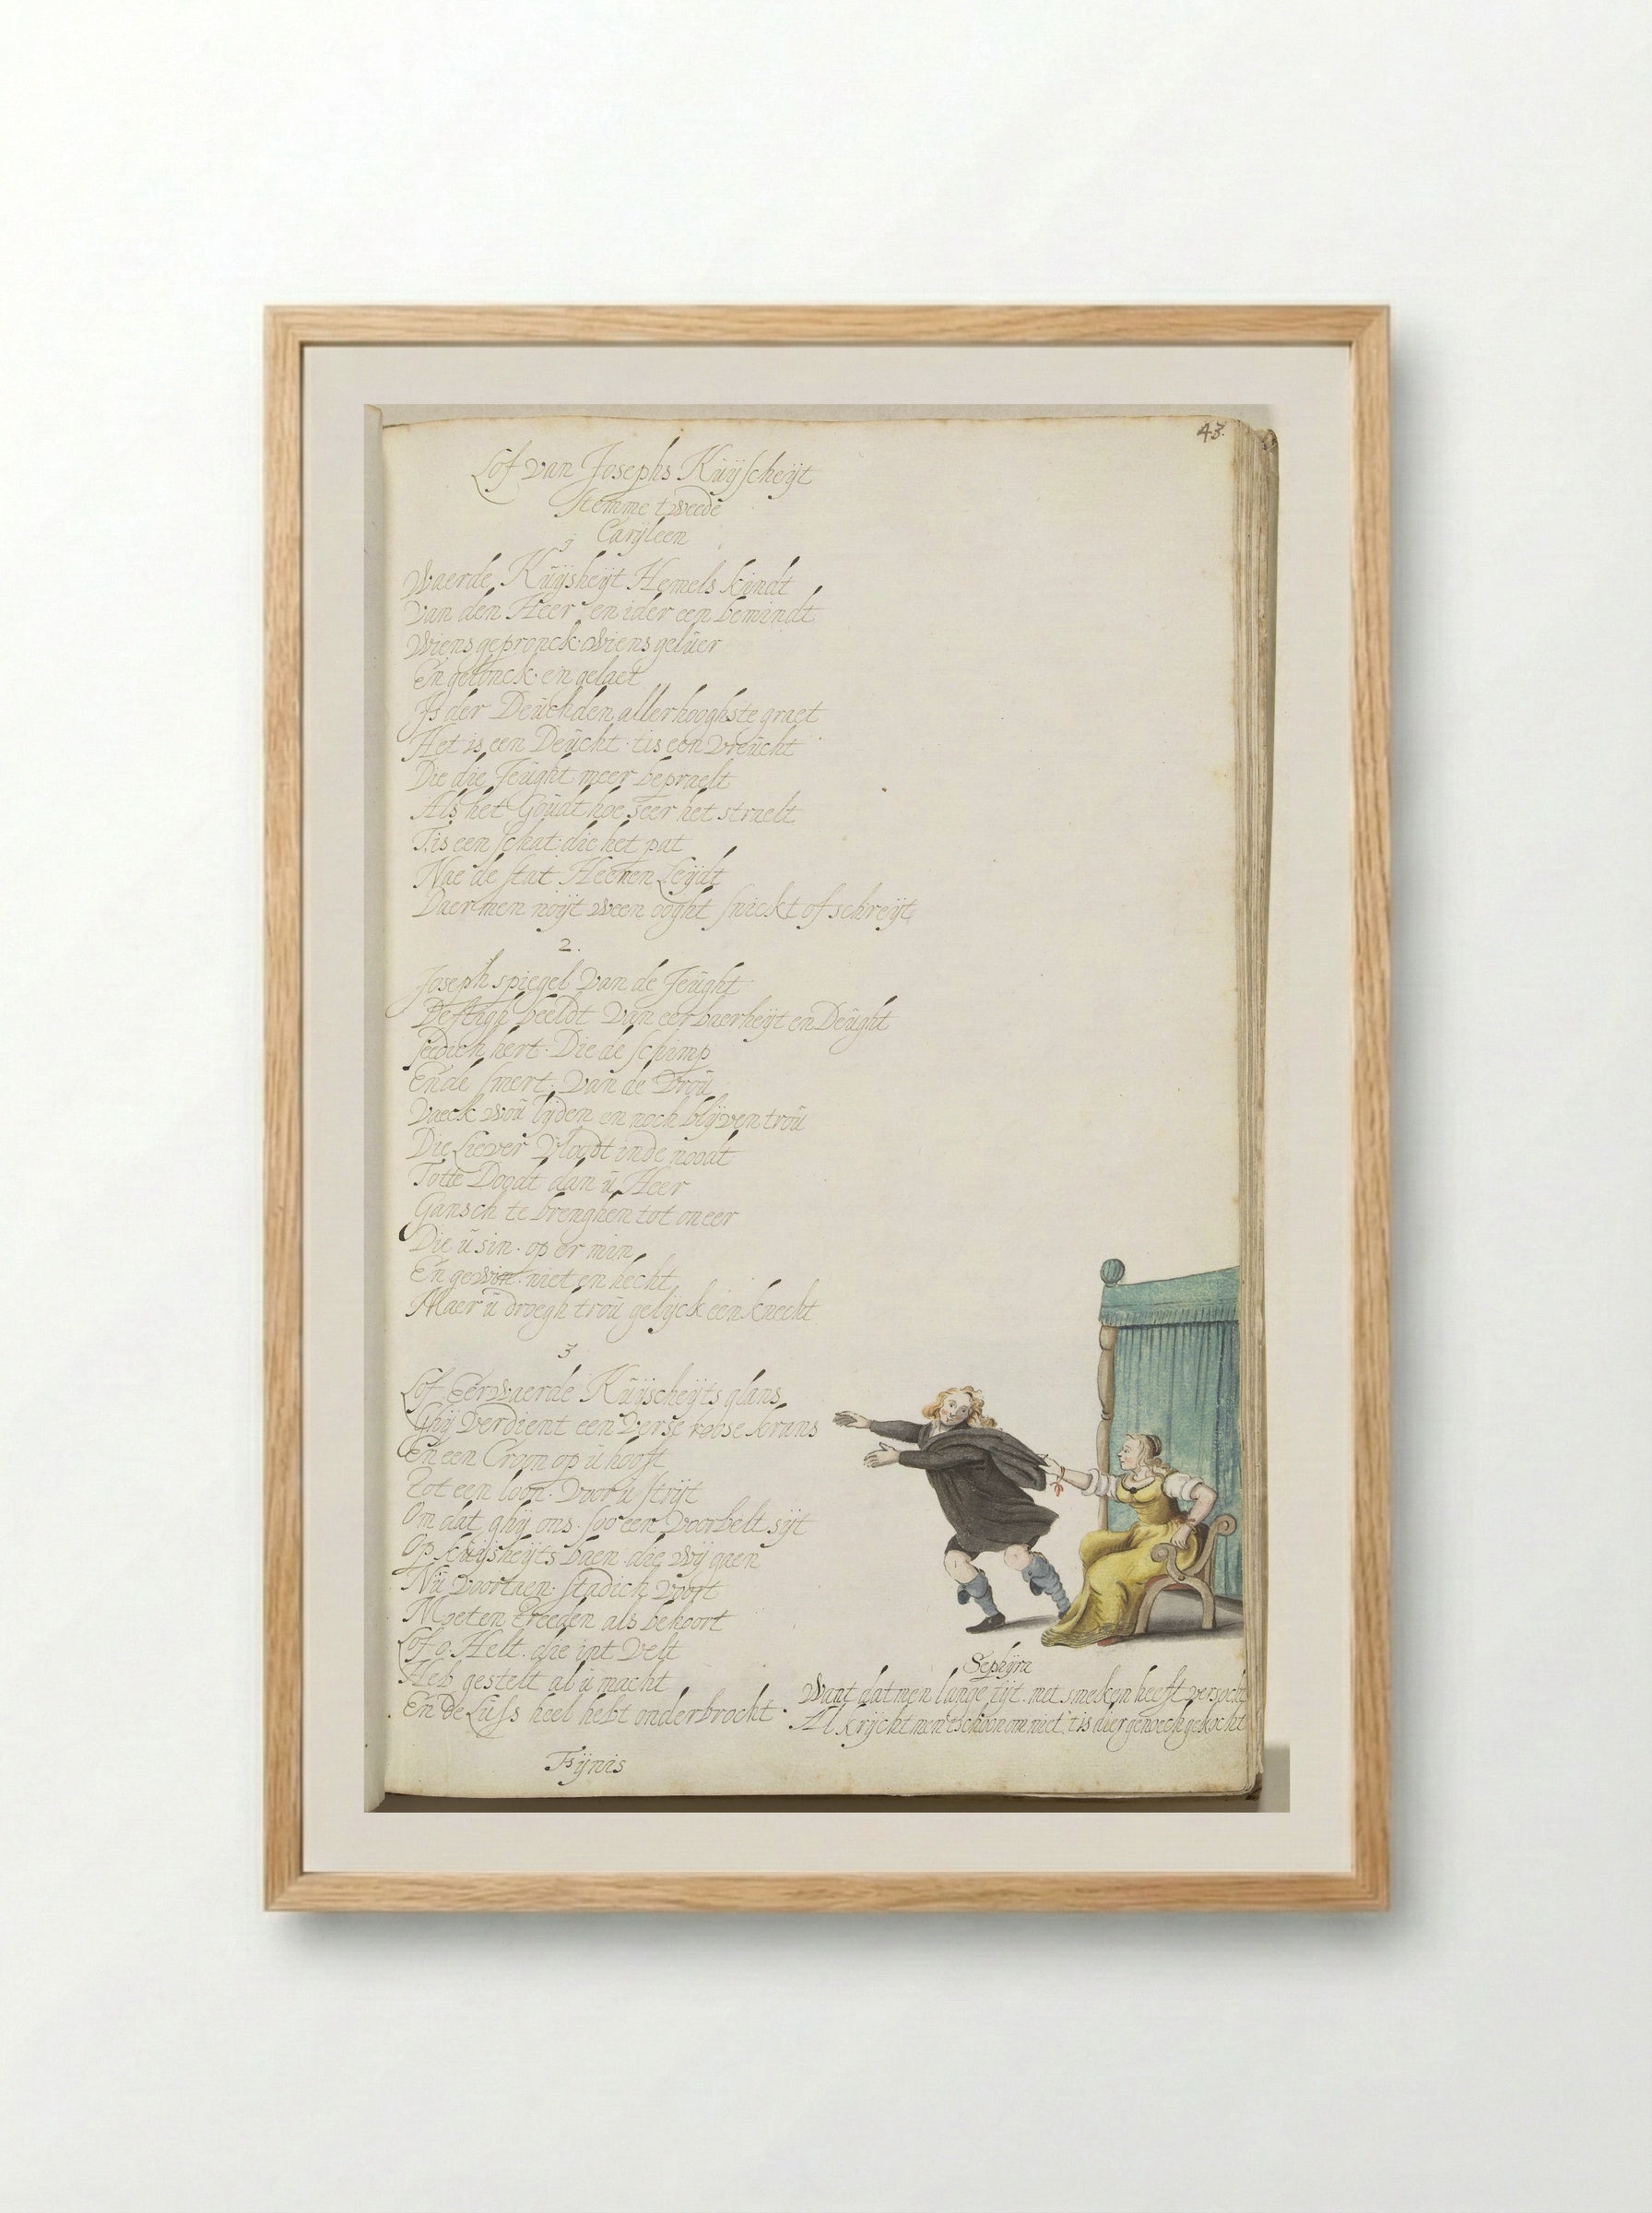 43.
Lof van Josephs Kuijscheijt
Stemme tweede
Carijleen
1
Waerde Kuijsheijt Hemels kindt
Van den Heer en ider een bemindt
Wiens gepronck wiens geluer
En gelonck en gelaet
Is der Deuchden allerhooghste graet
Het is een Deucht tis een vreucht
Die die Jeught meer bepraelt
Als het Goudt hoe seer het straelt
Tis een schat die het pat
Nae de stat Heenen Leijdt
Daermen noijt ween ooght snickt of schreijt
2.
Joseph spiegel van de Jeught
Deftigh beeldt van eerbaerheijt en Deught
seedich hert. Die de schimp
Ende smert. van de vrou
Vaeck wou lijden en noch blijven trou
Die Liever vloodt inde noodt
Totte Doodt dan u Heer
Gansch te brenghen tot oneer
Die u sin. op er min
En gewin. niet en hecht
Maer u droegh trou gelijck een knecht
3
Lof Eerwaerde Kuijscheijts glans
Ghij verdient een verse roose krans
En een Croon op u hooft
Tot een loon. voor u strijt
Om dat ghij ons. soo een voorbelt sijt
Op kuijsheijts baen die wij gaen
Nu voortaen. stadich voort
Moeten treeden als behoort
Lof o Helt. die int velt
Heb gestelt al u macht
En de Luss heel hebt onderbrocht
Fijnis
Sephijra
Want datmen lange tijt. met smeken heeft versocht
Al krijcht men tschoon om niet tis dier genoech gekocht